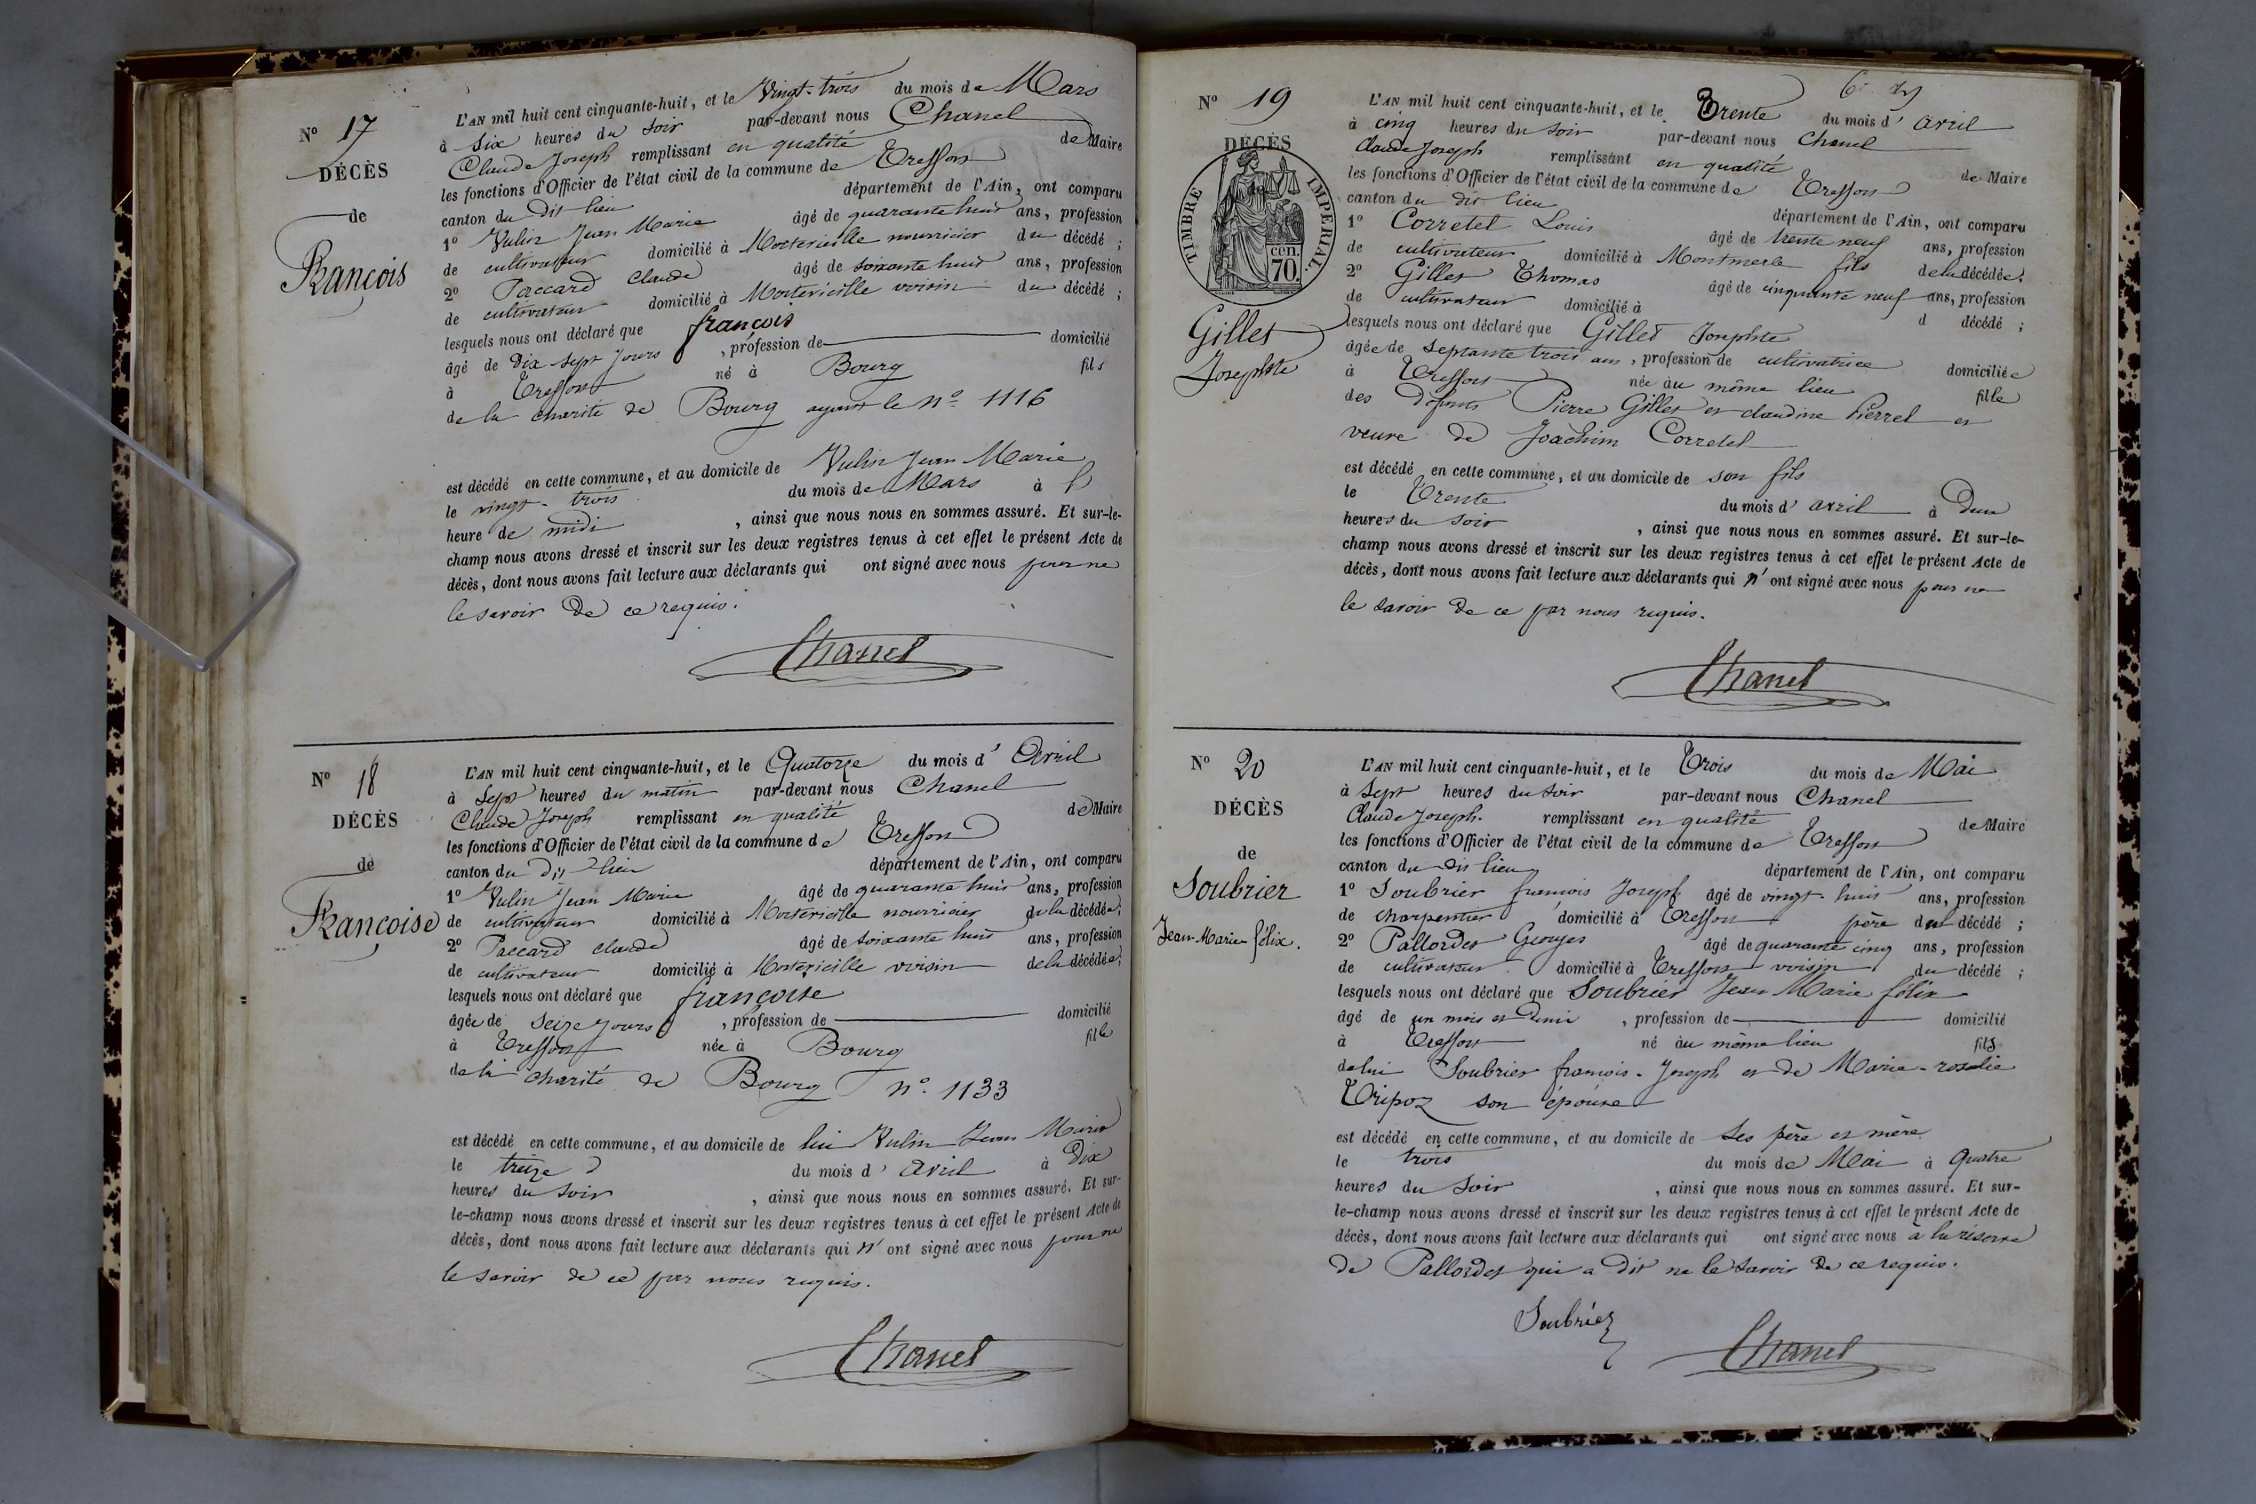 N° 17
DÉCÈS
de
François
L'AN mil huit cent cinquante-huit, et le Vingt-trois du mois de Mars
à Six heures du soir par-devant nous Chanel
Claude Joseph remplissant en qualité de Maire
les fonctions d'Officier de l'état civil de la commune de Treffort
canton du dit lieu département de l'Ain, ont comparu
1° Vulin Jean Marie âgé de quarante huit ans, profession
de cultivateur domicilié à Montericille nourricier du décédé ;
2° Paccard Claude âgé de soixante huit ans, profession
de cultivateur domicilié à Montericille voisin du décédé ;
lesquels nous ont déclaré que françois
âgé de Dix sept jours , profession de domicilié
à Treffort né à Bourg fils
de la charité de Bourg ayant le N° 1116
est décédé en cette commune, et au domicile de Vulin Jean Marie
le vingt-trois du mois de Mars à l'
heure de midi , ainsi que nous nous en sommes assuré. Et sur-le-
champ nous avons dressé et inscrit sur les deux registres tenus à cet effet le présent Acte de
décès, dont nous avons fait lecture aux déclarants qui ont signé avec nous pour ne
le savoir de ce requis.
Chanel
N° 18
DÉCÈS
de
Françoise
L'AN mil huit cent cinquante-huit, et le Quatorze du mois d' Avril
à Sept heures du matin par-devant nous Chanel
Claude Joseph remplissant en qualité de Maire
les fonctions d'Officier de l'état civil de la commune de Treffort
canton du Dit lieu département de l'Ain, ont comparu
1° Vulin Jean Marie âgé de quarante huit ans, profession
de cultivateur domicilié à Montericille nourricier de la décédée ;
2° Paccard claude âgé de soixante huit ans, profession
de cultivateur domicilié à Montericille voisin de la décédée ;
lesquels nous ont déclaré que françoise
âgée de Seize jours , profession de domicilié
à Treffort née à Bourg fille
de la charité de Bourg N° 1133
est décédé en cette commune, et au domicile de lui Vulin Jean Marie
le treize du mois d' avril à Dix
heures du soir , ainsi que nous nous en sommes assuré. Et sur-
le-champ nous avons dressé et inscrit sur les deux registres tenus à cet effet le présent Acte de
décès, dont nous avons fait lecture aux déclarants qui n' ont signé avec nous pour ne
le savoir de ce par nous requis.
Chanel
N° 19
DÉCÈS
TIMBRE IMPÉRIAL.
cen. 70
Gillet
Josephte
L'AN mil huit cent cinquante-huit, et le Trente du mois d' avril
à cinq heures du soir par-devant nous Chanel
Claude Joseph remplissant en qualité de Maire
les fonctions d'Officier de l'état civil de la commune de Treffort
canton du dit lieu département de l'Ain, ont comparu
1° Corretel Louis âgé de trente neuf ans, profession
de cultivateur domicilié à Montmerle fils de la décédée ;
2° Gillet Thomas âgé de cinquante neuf ans, profession
de cultivateur domicilié à d décédé ;
lesquels nous ont déclaré que Gillet Josephte
âgée de septante trois ans , profession de cultivatrice domiciliée
à Treffort née au même lieu fille
des défunts Pierre Gillet et claudine Pierrel et
veuve de Joachim Corretel
est décédé en cette commune, et au domicile de son fils
le Trente du mois d' avril à Deux
heures du soir , ainsi que nous nous en sommes assuré. Et sur-le-
champ nous avons dressé et inscrit sur les deux registres tenus à cet effet le présent Acte de
décès, dont nous avons fait lecture aux déclarants qui n' ont signé avec nous pour ne
le savoir de ce par nous requis.
Chanel
N° 20
DÉCÈS
de
Soubrier
Jean Marie félix.
L'AN mil huit cent cinquante-huit, et le Trois du mois de Mai
à Sept heures du soir par-devant nous Chanel
Claude Joseph. remplissant en qualité de Maire
les fonctions d'Officier de l'état civil de la commune de Treffort
canton du dit lieu département de l'Ain, ont comparu
1° Soubrier françois Joseph âgé de vingt-huit ans, profession
de charpentier domicilié à Treffort père du décédé ;
2° Pallordet Georges âgé de quarante cinq ans, profession
de cultivateur domicilié à Treffort voisin du décédé ;
lesquels nous ont déclaré que Soubrier Jean Marie félix
âgé de un mois et Demi , profession de domicilié
à Treffort né au même lieu fils
de lui Soubrier francois-Joseph et de Marie-rosalie
Tripoz son épouse
est décédé en cette commune, et au domicile de Ses père et mère
le trois du mois de Mai à Quatre
heures du soir , ainsi que nous nous en sommes assuré. Et sur-
le-champ nous avons dressé et inscrit sur les deux registres tenus à cet effet le présent Acte de
décès, dont nous avons fait lecture aux déclarants qui ont signé avec nous à la réserve
de Pallordet qui a dit ne le savoir de ce requis.
Soubrier
Chanel